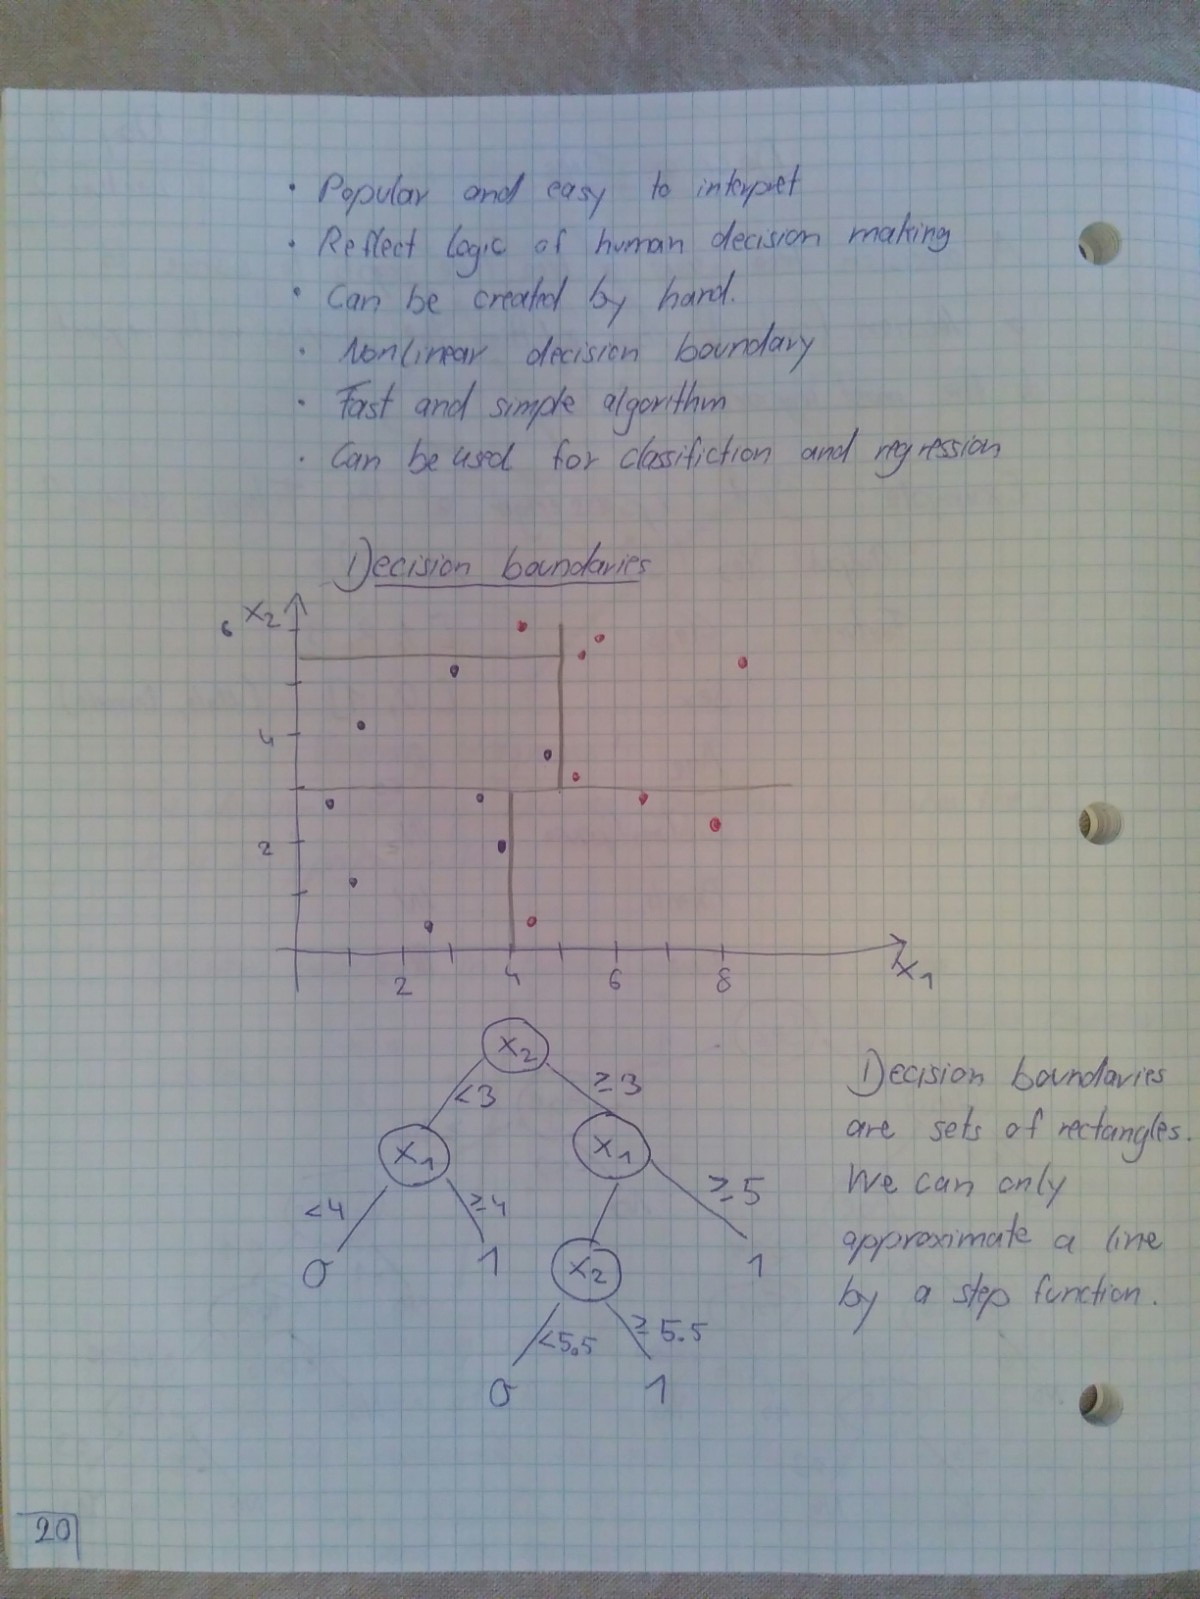 · Popular and easy to interpret
· Reflect logic of human decision making
· Can be created by hand.
· Nonlinear decision boundary
· Fast and simple algorithm
· Can be used for classifiction and regression
Decision boundaries
6 x2
4
2
2 4 6 8
x1
x2
<3 ≥3
x1 x1
<4 ≥4 ≥5
0 1 x2 1
<5.5 ≥5.5
0 1
Decision boundaries
are sets of rectangles.
We can only
approximate a line
by a step function.
20